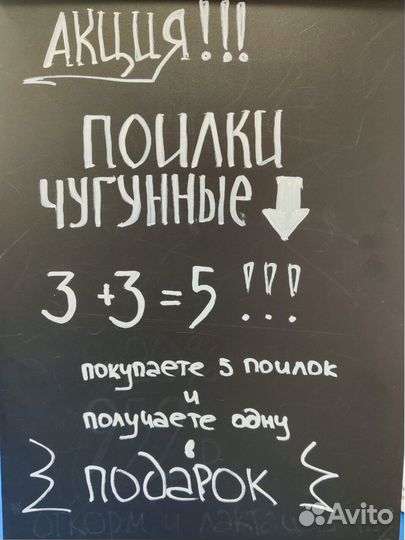 АКЦИЯ!!!
ПОИЛКИ
ЧУГУННЫЕ
3+3=5 !!!
покупаете 5 поилок
и
получаете одну
в
ПОДАРОК
откорм и лактац
Avito